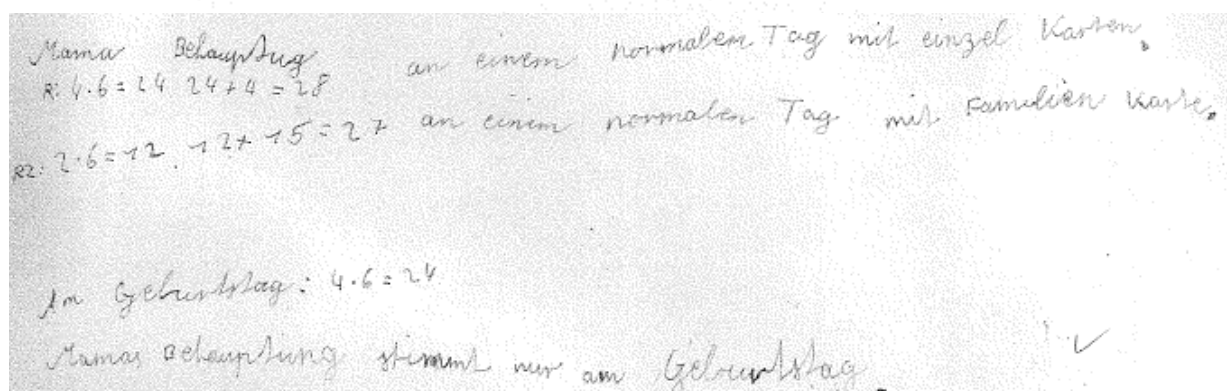 Mama Behauptug an einem normalen Tag mit einzel Karten.
R: 4·6=24 24+4=28
R2: 2·6=12 12+15=27 an einem normalen Tag mit Familien Karte.
Am Geburtstag: 4·6=24
Mamas Behauptung stimmt nur am Geburtstag.